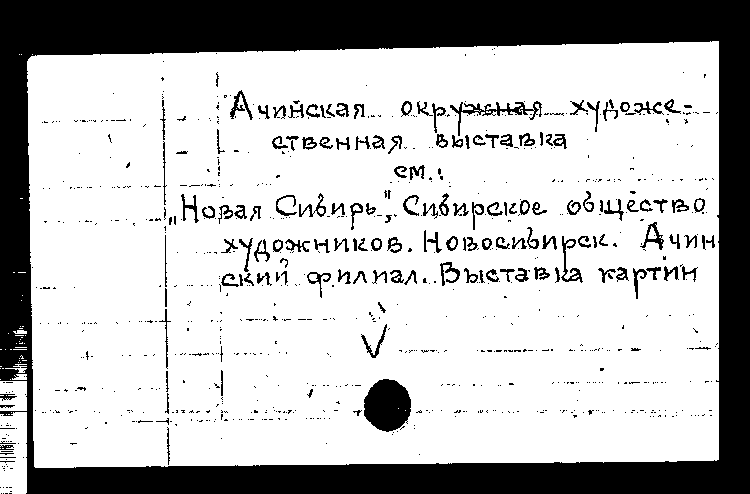 Ачинская окружная художе-
ственная выставка
см.:
„Новая Сибирь", Сибирское общество
художников. Новосибирск. Ачин
ский филиал. Выставка картин